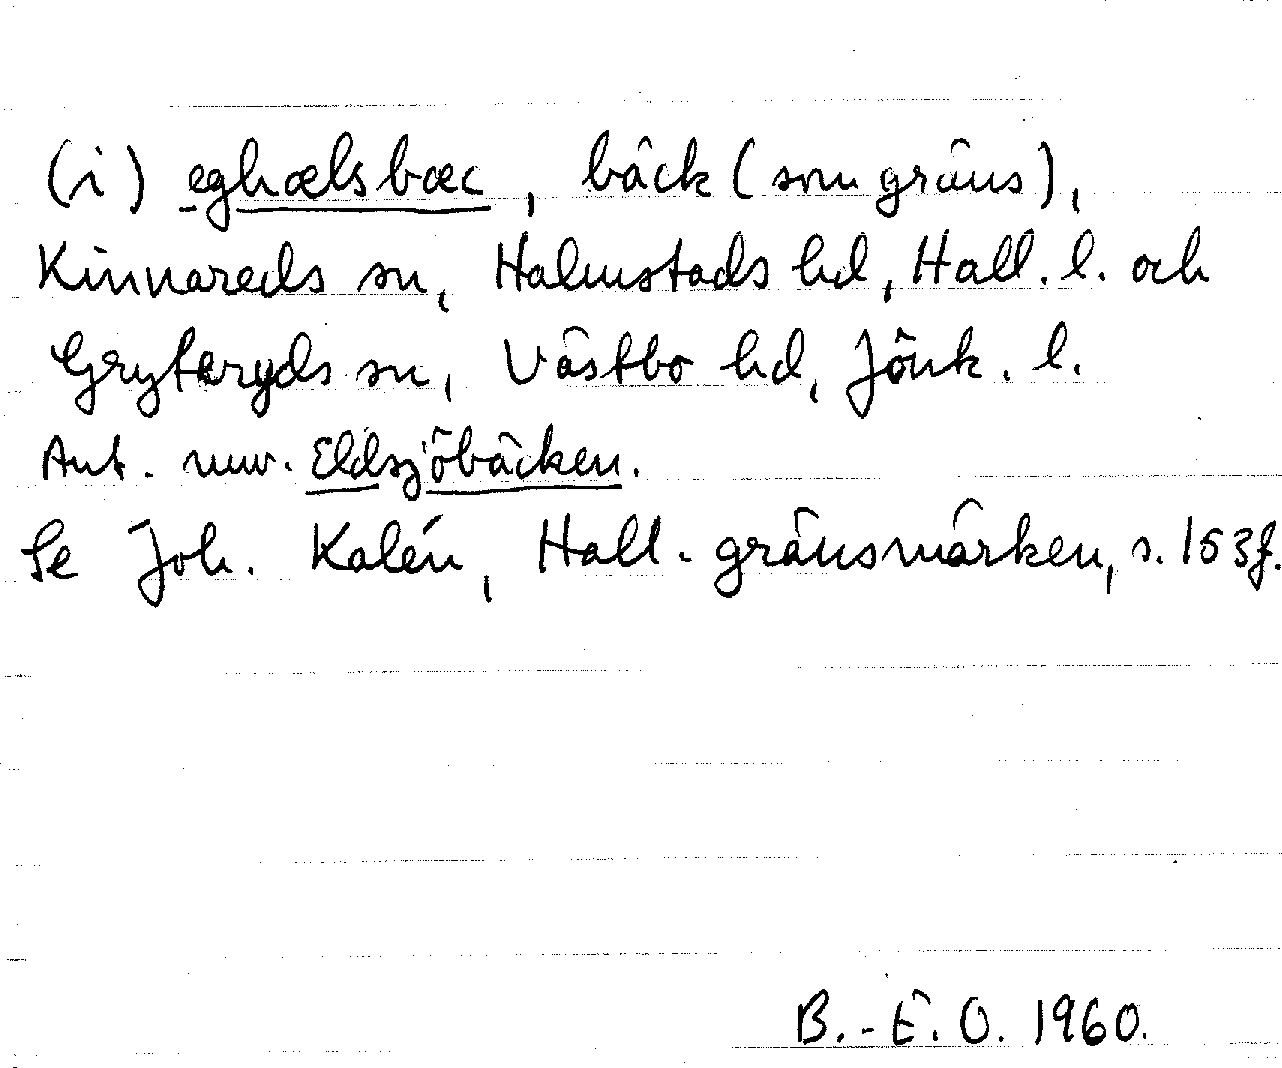 (i) eghælsbæc, bäck (som gräns),
Kinnareds sn, Halmstads hd, Hall. l. och
Gryteryds sn, Västbo hd, Jönk. l.
Ant. nuv. Eldsjöbäcken.
Se Joh. Kalén, Hall. gränsmärken, s. 153f.
B.-E. O. 1960.